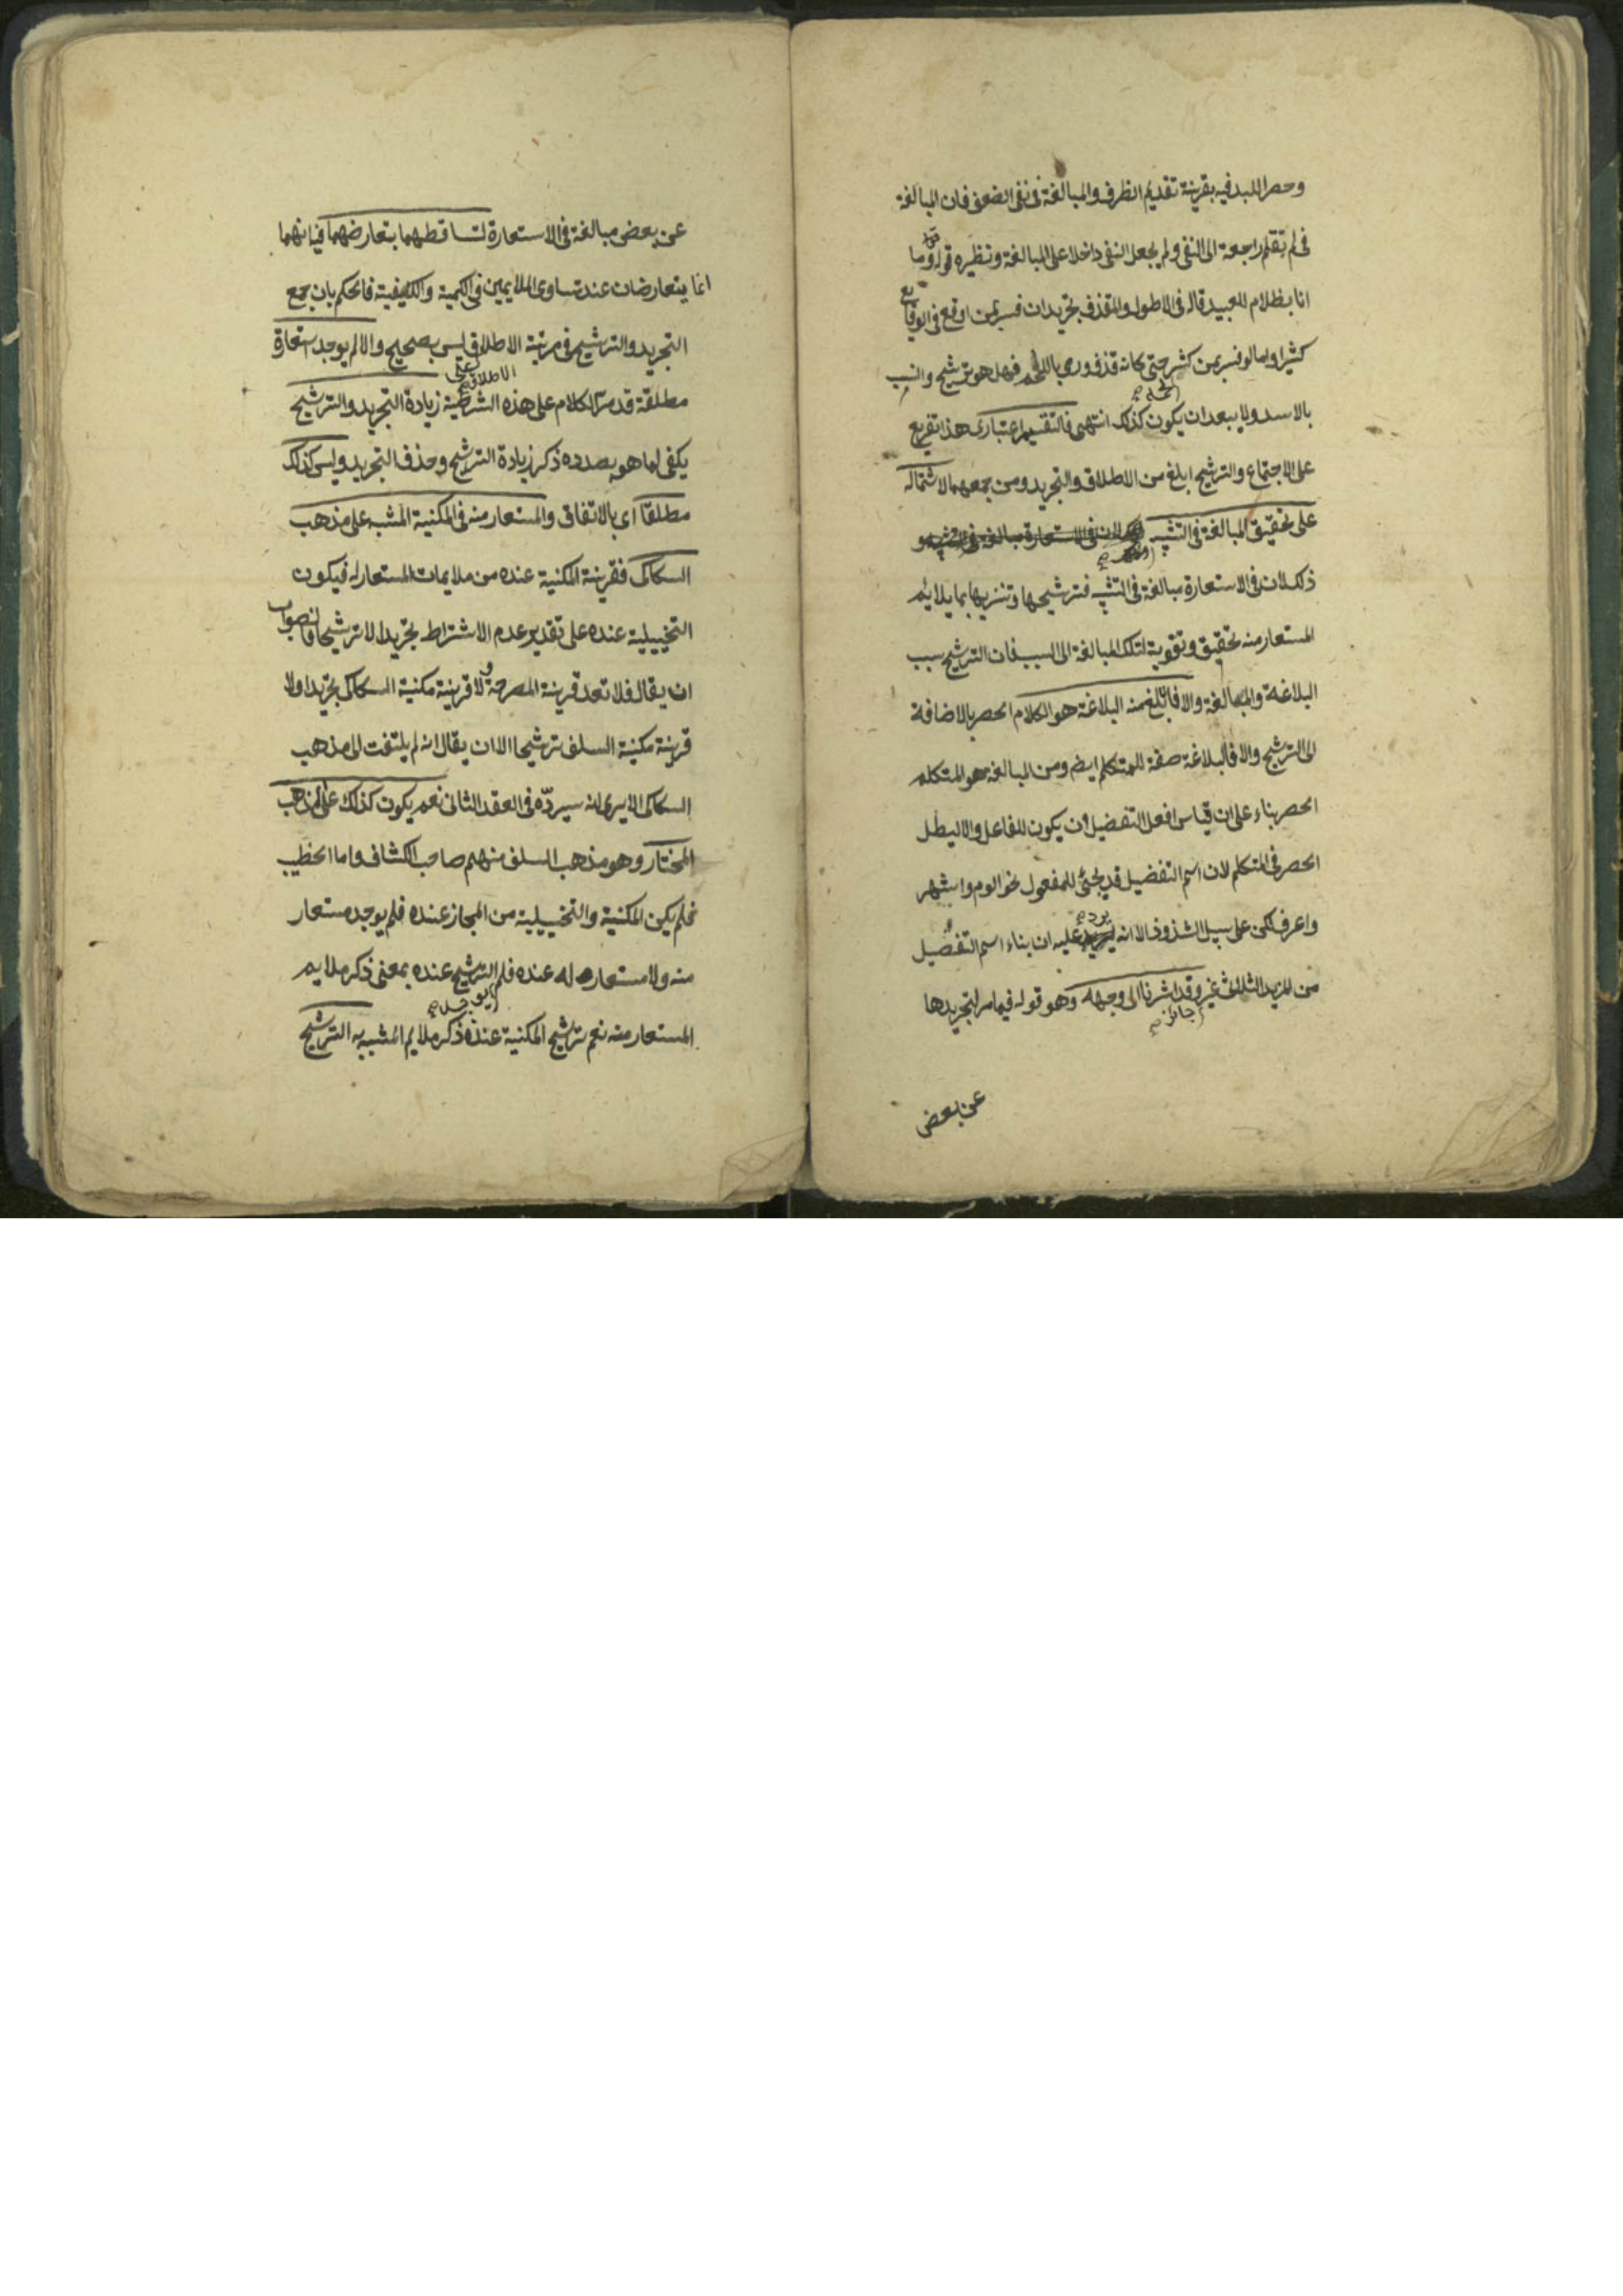 وحصر اللبد فيه بقرينة تقديم الظرف والمبالغة في نفي الضعف فان المبالغة
في لم تقلم راجعة الى النفي ولم يجعل النفي داخلا على المبالغة ونظيره قوله تعالى وما
انا بظلام للعبيد قال في الاطول والمقذف تجريد ان فسر بمن اوقع في الوقايع
كثيرا واما لو فسر بمن كثر حتى كانه قذف ورمي باللحم فهل هو ترشيح وانسب
بالاسد ولا يبعد ان يكون كذلك انتهى فالتقسيم اعتباري هذا تفريع
على الاجتماع والترشيح ابلغ من الاطلاق والتجريد ومن جمعهما لاشتماله
على تحقيق المبالغة في التشبيه لان في الاستعارة مبالغة في التشبيه و
ذلك لان في الاستعارة مبالغة في التشبيه فترشيحها وتزيينها بما يلايم
المستعار منه تحقيق وتقوية لتلك المبالغة الى السبب فان الترشيح سبب
البلاغة والمبالغة والا فابلغ منه البلاغة هو الكلام الحصر بالاضافة
الى الترشيح والا فالبلاغة صفة للمتكلم ايضا ومن المبالغة هو المتكلم
الحصر بناء على ان قياس افعل التفضيل ان يكون للفاعل والا ليطل
الحصر في المتكلم لان اسم التفضيل قد يجئ للمفعول نحو الوم واشهر
واعرف لكن على سبيل الشذوذ الا انه يرد عليه ان بناء اسم التفضيل
من المزيد الثلاثي غير جائز وقد اشرنا الى وجهه وهو قوله فيما مر لتجريدها
عن بعض
عن بعض مبالغة في الاستعارة لتساقطهما بتعارضهما فيه انهما
انما يتعارضان عند تساوي الملايمين في الكمية والكيفية فالحكم بان جمع
التجريد والترشيح في مرتبة الاطلاق ليس بصحيح والا لم يوجد استعارة
مطلقة قد مر الكلام على هذه الشرطية زيادة التجريد والترشيح
يكفي لما هو بصدده ذكر زيادة الترشيح وحذف التجريد وليس كذلك
مطلقا اي بالاتفاق والمستعار منه في المكنية المشبه على مذهب
السكاكي فقرينة المكنية عنده من ملايمات المستعار له فيكون
التخييلية عنده على تقدير عدم الاشتراط تجريدا لا ترشيحا فالصواب
ان يقال فلا تعد قرينة المصرحة ولا قرينة مكنية السكاكي تجريدا ولا
قرينة مكنية السلف ترشيحا الا ان يقال انه لم يلتفت الى مذهب
السكاكي الا يرى انه سيرده في العقد الثاني نعم يكون كذلك على المذهب
المختار وهو مذهب السلف منهم صاحب الكشاف واما الخطيب
فلم يكن المكنية والتخييلية من المجاز عنده فلم يوجد مستعار
منه ولا مستعار له عنده فلم يوجد الترشيح عنده بمعنى ذكر ملايم
المستعار منه نعم ترشيح المكنية عنده ذكر ملايم المشبه به الترشيح